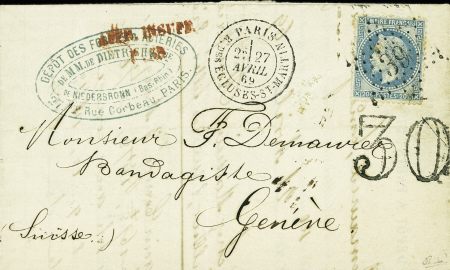 AFFR. INSUFF.
P. 39
DÉPÔT DES FORGES & ACIERIES
DE MM. DE DIETRICH & CIE
DE NIEDERBRONN (Bas-Rhin)
Rue Corbeau, PARIS.
PARIS
27
AVRIL
69
R. DES ECLUSES-ST-MARTIN
EMPIRE FRANC
39
30
Monsieur F. Demaurex
Bandagiste
Genève
(Suisse.)